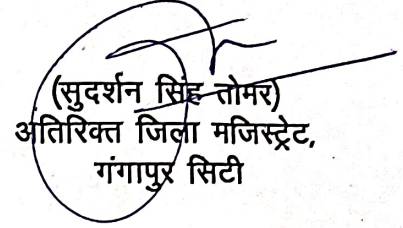 (सुदर्शन सिंह तोमर)
अतिरिक्त जिला मजिस्ट्रेट,
गंगापुर सिटी